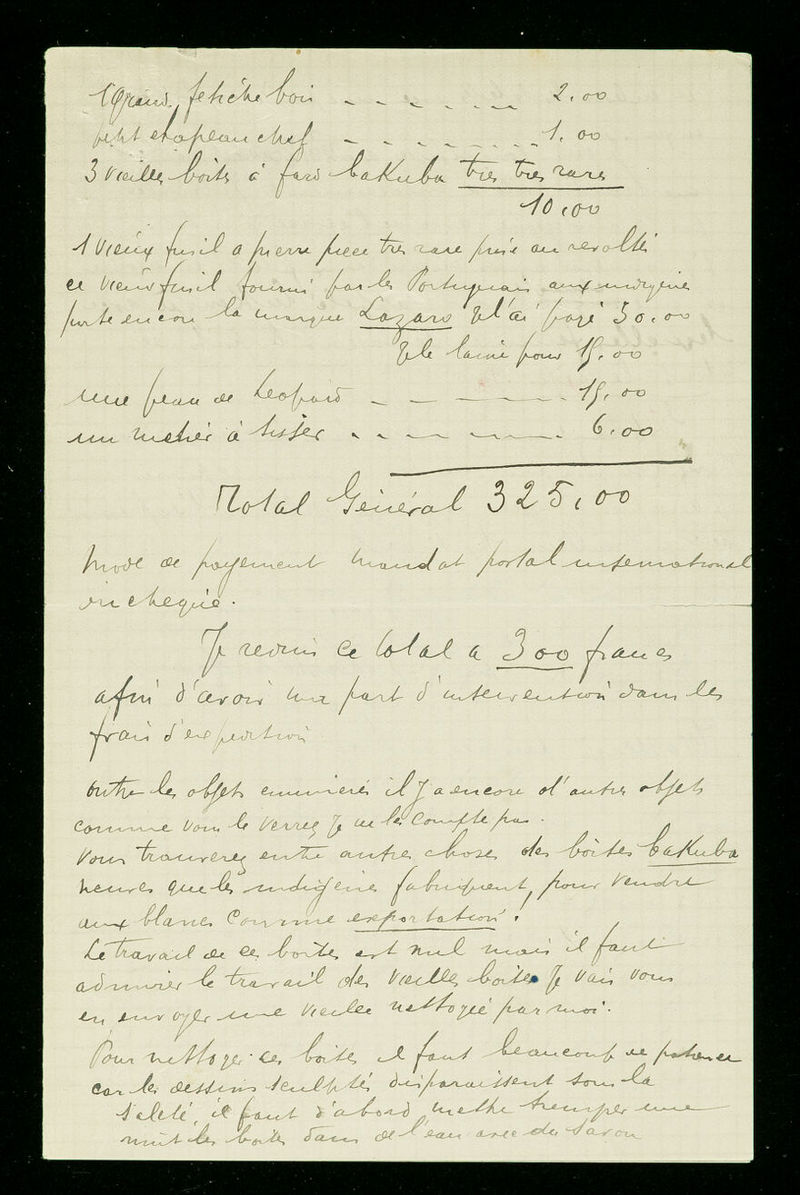 1 Grand fetiche bois - - - - - - - 2.00
petit chapeau chef - - - - - - - - - 1.00
3 vieilles boites à fard baKuba tres tres rares
10,00
1 vieux fusil a pierre piece tres rare pris au revoltés
ce vieux fusil fourni par les Portuguais aux indigène
porte encore la marque Lazaro Je l'ai payé 30.00
Je le laisse pour 15.00
une peau de Leopard - - - - - 15.00
un metier à tisser - - - - - - 6.00
Total Général 325,00
Mode de payement mandat postal international
ou cheque.
Je reduis ce total a 300 francs
afin d'avoir ma part d'intervention dans les
frais d'expedition
outre les objets enumerés il y a encore d'autres objets
comme vous le verrez Je ne les compte pas.
Vous trouverez entre autres choses des boites baKuba
neuves que les indigènes fabriquent, pour vendre
aux blancs comme exportation.
Le travail de ces boites est nul mais il faut
admirer le travail des vieilles boites Je vais vous
en envoyer une vieille nettoyée par moi.
Pour nettoyer ces boites il faut beaucoup de patience
car les dessins sculptés disparaissent sous la
saleté, il faut d'abord mettre tremper une
nuit les boites dans de l'eau avec du savon